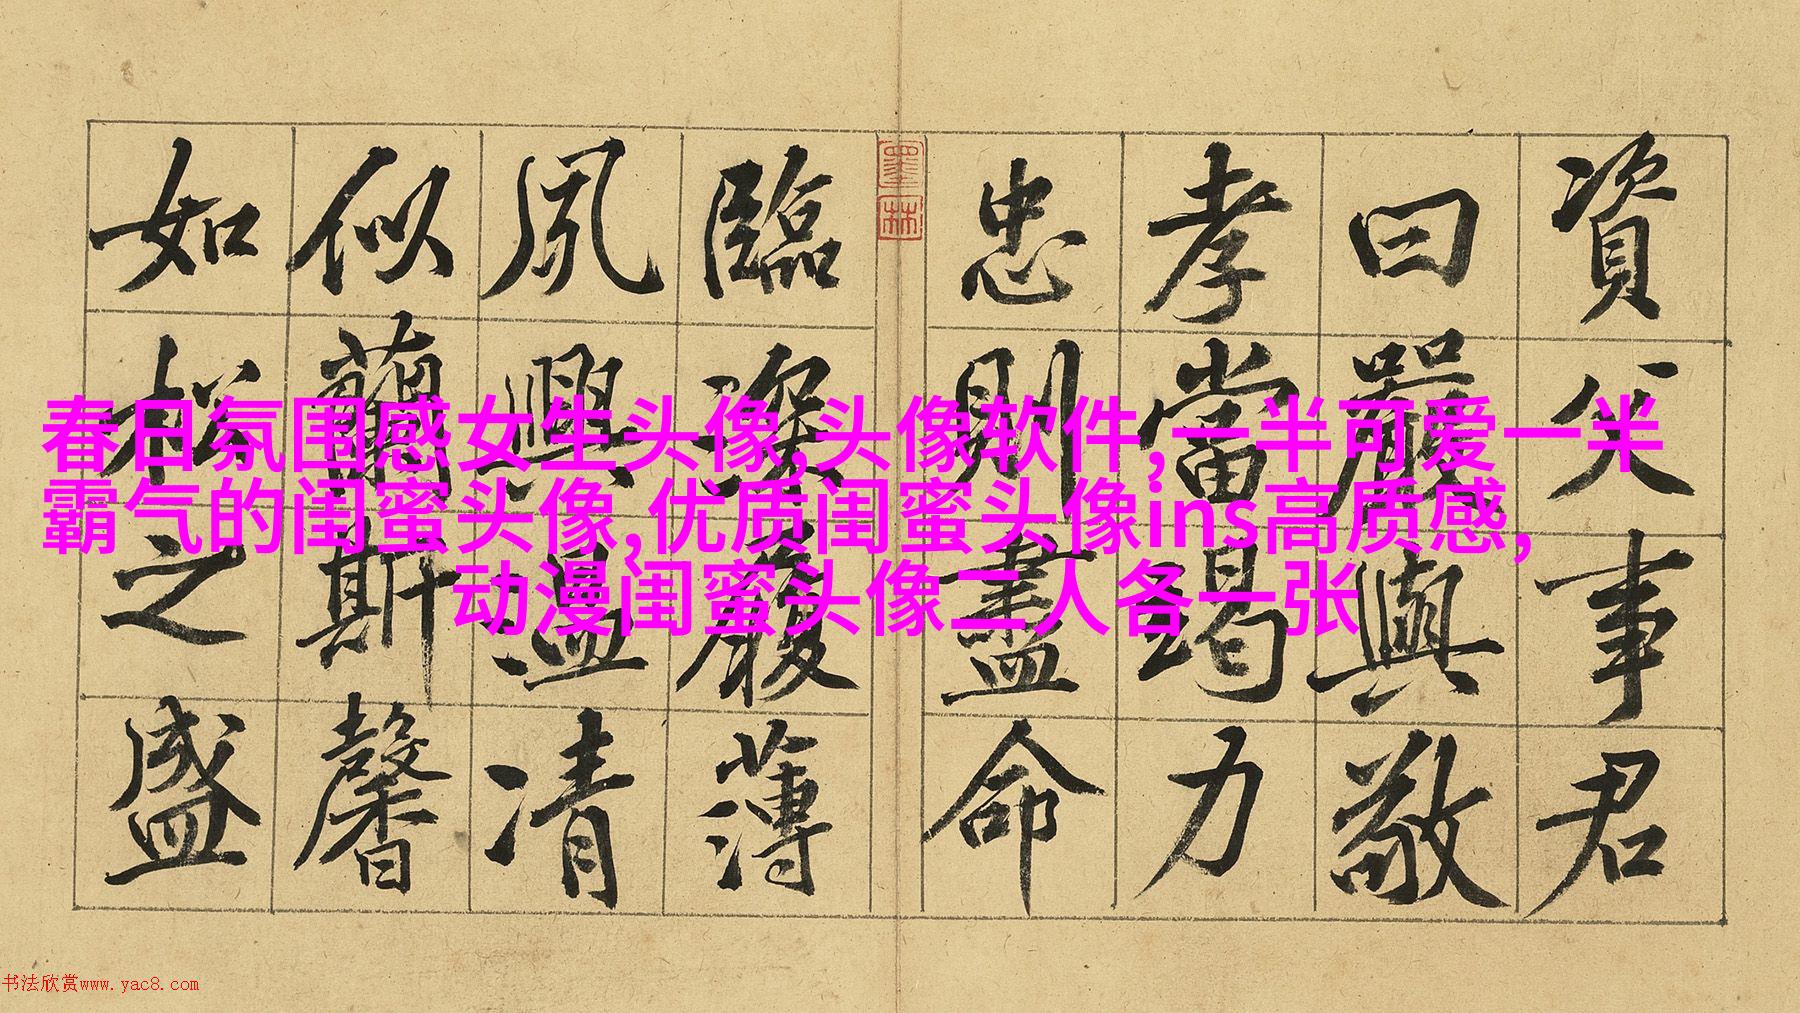 資父事君
曰嚴與敬
孝當竭力
忠則盡命
臨深履薄
夙興溫凊
似蘭斯馨
如松之盛
墨林
春日氛围感女生头像,头像软件,一半可爱一半
霸气的闺蜜头像,优质闺蜜头像ins高质感,
动漫闺蜜头像二人各一张
书法欣赏www.yac8.com